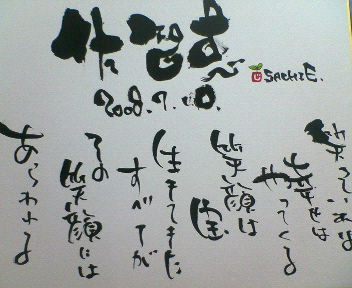 SACHIE.
2008.7.10.
笑っていれば
幸せは
やってくる
笑顔は
宝
生きてきた
すべてが
その
笑顔には
あらわれる